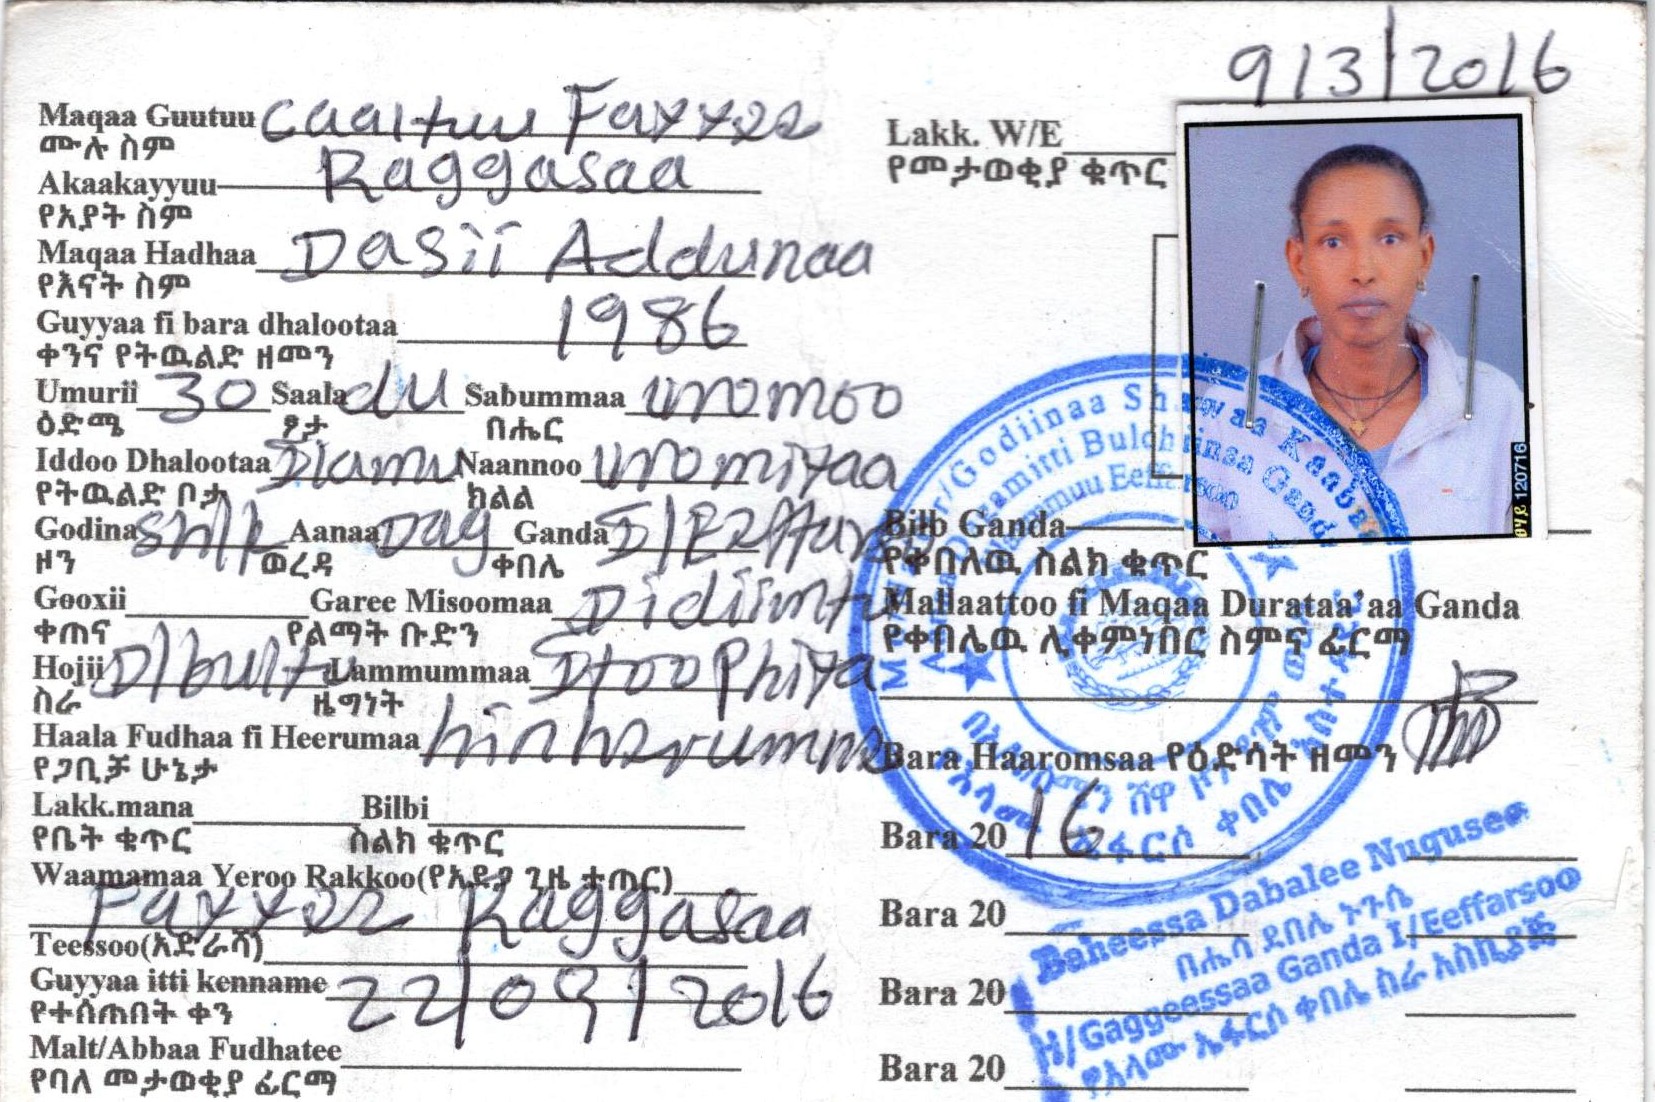 9/3/2016
Maqaa Guutuu Caaltuu Fayyee
ሙሉ ስም
Akaakayyuu Raggasaa
የአያት ስም
Maqaa Hadhaa Dasii Addunaa
የእናት ስም
Guyyaa fi bara dhalootaa 1986
ቀንና የትዉልድ ዘመን
Umurii 30 Saala du Sabummaa uromoo
ዕድሜ ፆታ በሔር
Iddoo Dhalootaa Naannoo uromiyaa
የትዉልድ ቦታ ክልል
Godina sh/k Aanaa Dag Ganda
ዞን ወረዳ ቀበሌ
Gooxii Garee Misoomaa
ቀጠና የልማት ቡድን
Hojii D/bultu Lammummaa Itoophiya
ስራ ዜግነት
Haala Fudhaa fi Heerumaa hin heerumne
የጋቢቻ ሁኔታ
Lakk.mana Bilbi
የቤት ቁጥር ስልክ ቁጥር
Waamamaa Yeroo Rakkoo(የአደጋ ጊዜ ተጠር)
Fayyee Raggasaa
Teessoo(አድራሻ)
Guyyaa itti kenname 22/09/2016
የተሰጠበት ቀን
Malt/Abbaa Fudhatee
የባለ መታወቂያ ፊርማ
Lakk. W/E
የመታወቂያ ቁጥር
120716
Bilb Ganda
የቀበለዉ ስልክ ቁጥር
Mallaattoo fi Maqaa Durataa'aa Ganda
የቀበሌዉ ሊቀምነበር ስምና ፊርማ
Bara Haaromsaa የዕድሳት ዘመን
Bara 20 16
Bara 20
Bara 20
Bara 20
Godiinaa Shawaa Kaabaa
Baheessa Dabalee Nugusee
በሔሳ ደበሌ ኑጉሴ
H/Gaggeessaa Ganda I/Eeffarsoo
የእላሙ ኤፋርሶ ቀበሌ ስራ አስኪያጅ